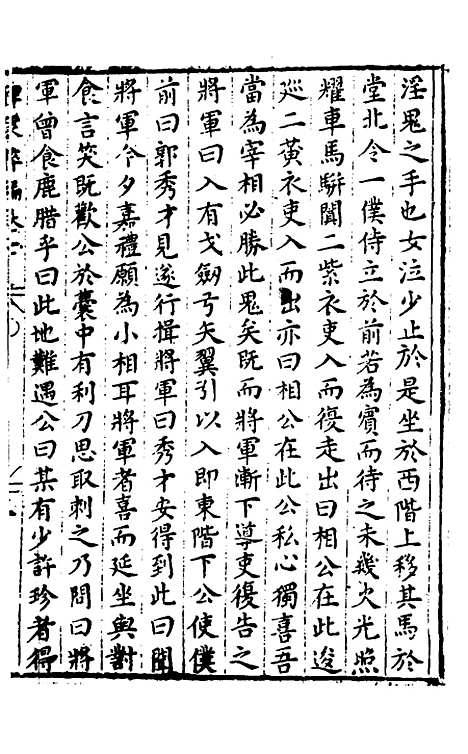 淫鬼之手也女泣少止於是坐於西階上移其馬於
堂北令一僕侍立於前若為賓而待之未幾火光照
耀車馬駢闐二紫衣吏入而復走出曰相公在此逡
廵二黃衣吏入而出亦曰相公在此公私心獨喜吾
當為宰相必勝此鬼矣既而將軍漸下導吏復告之
將軍曰入有戈劔弓矢翼引以入即東階下公使僕
前曰郭秀才見遂行揖將軍曰秀才安得到此曰聞
將軍今夕嘉禮願為小相耳將軍者喜而延坐與對
食言笑既歡公於囊中有利刀思取刺之乃問曰將
軍曾食鹿腊乎曰此地難遇公曰某有少許珍者得